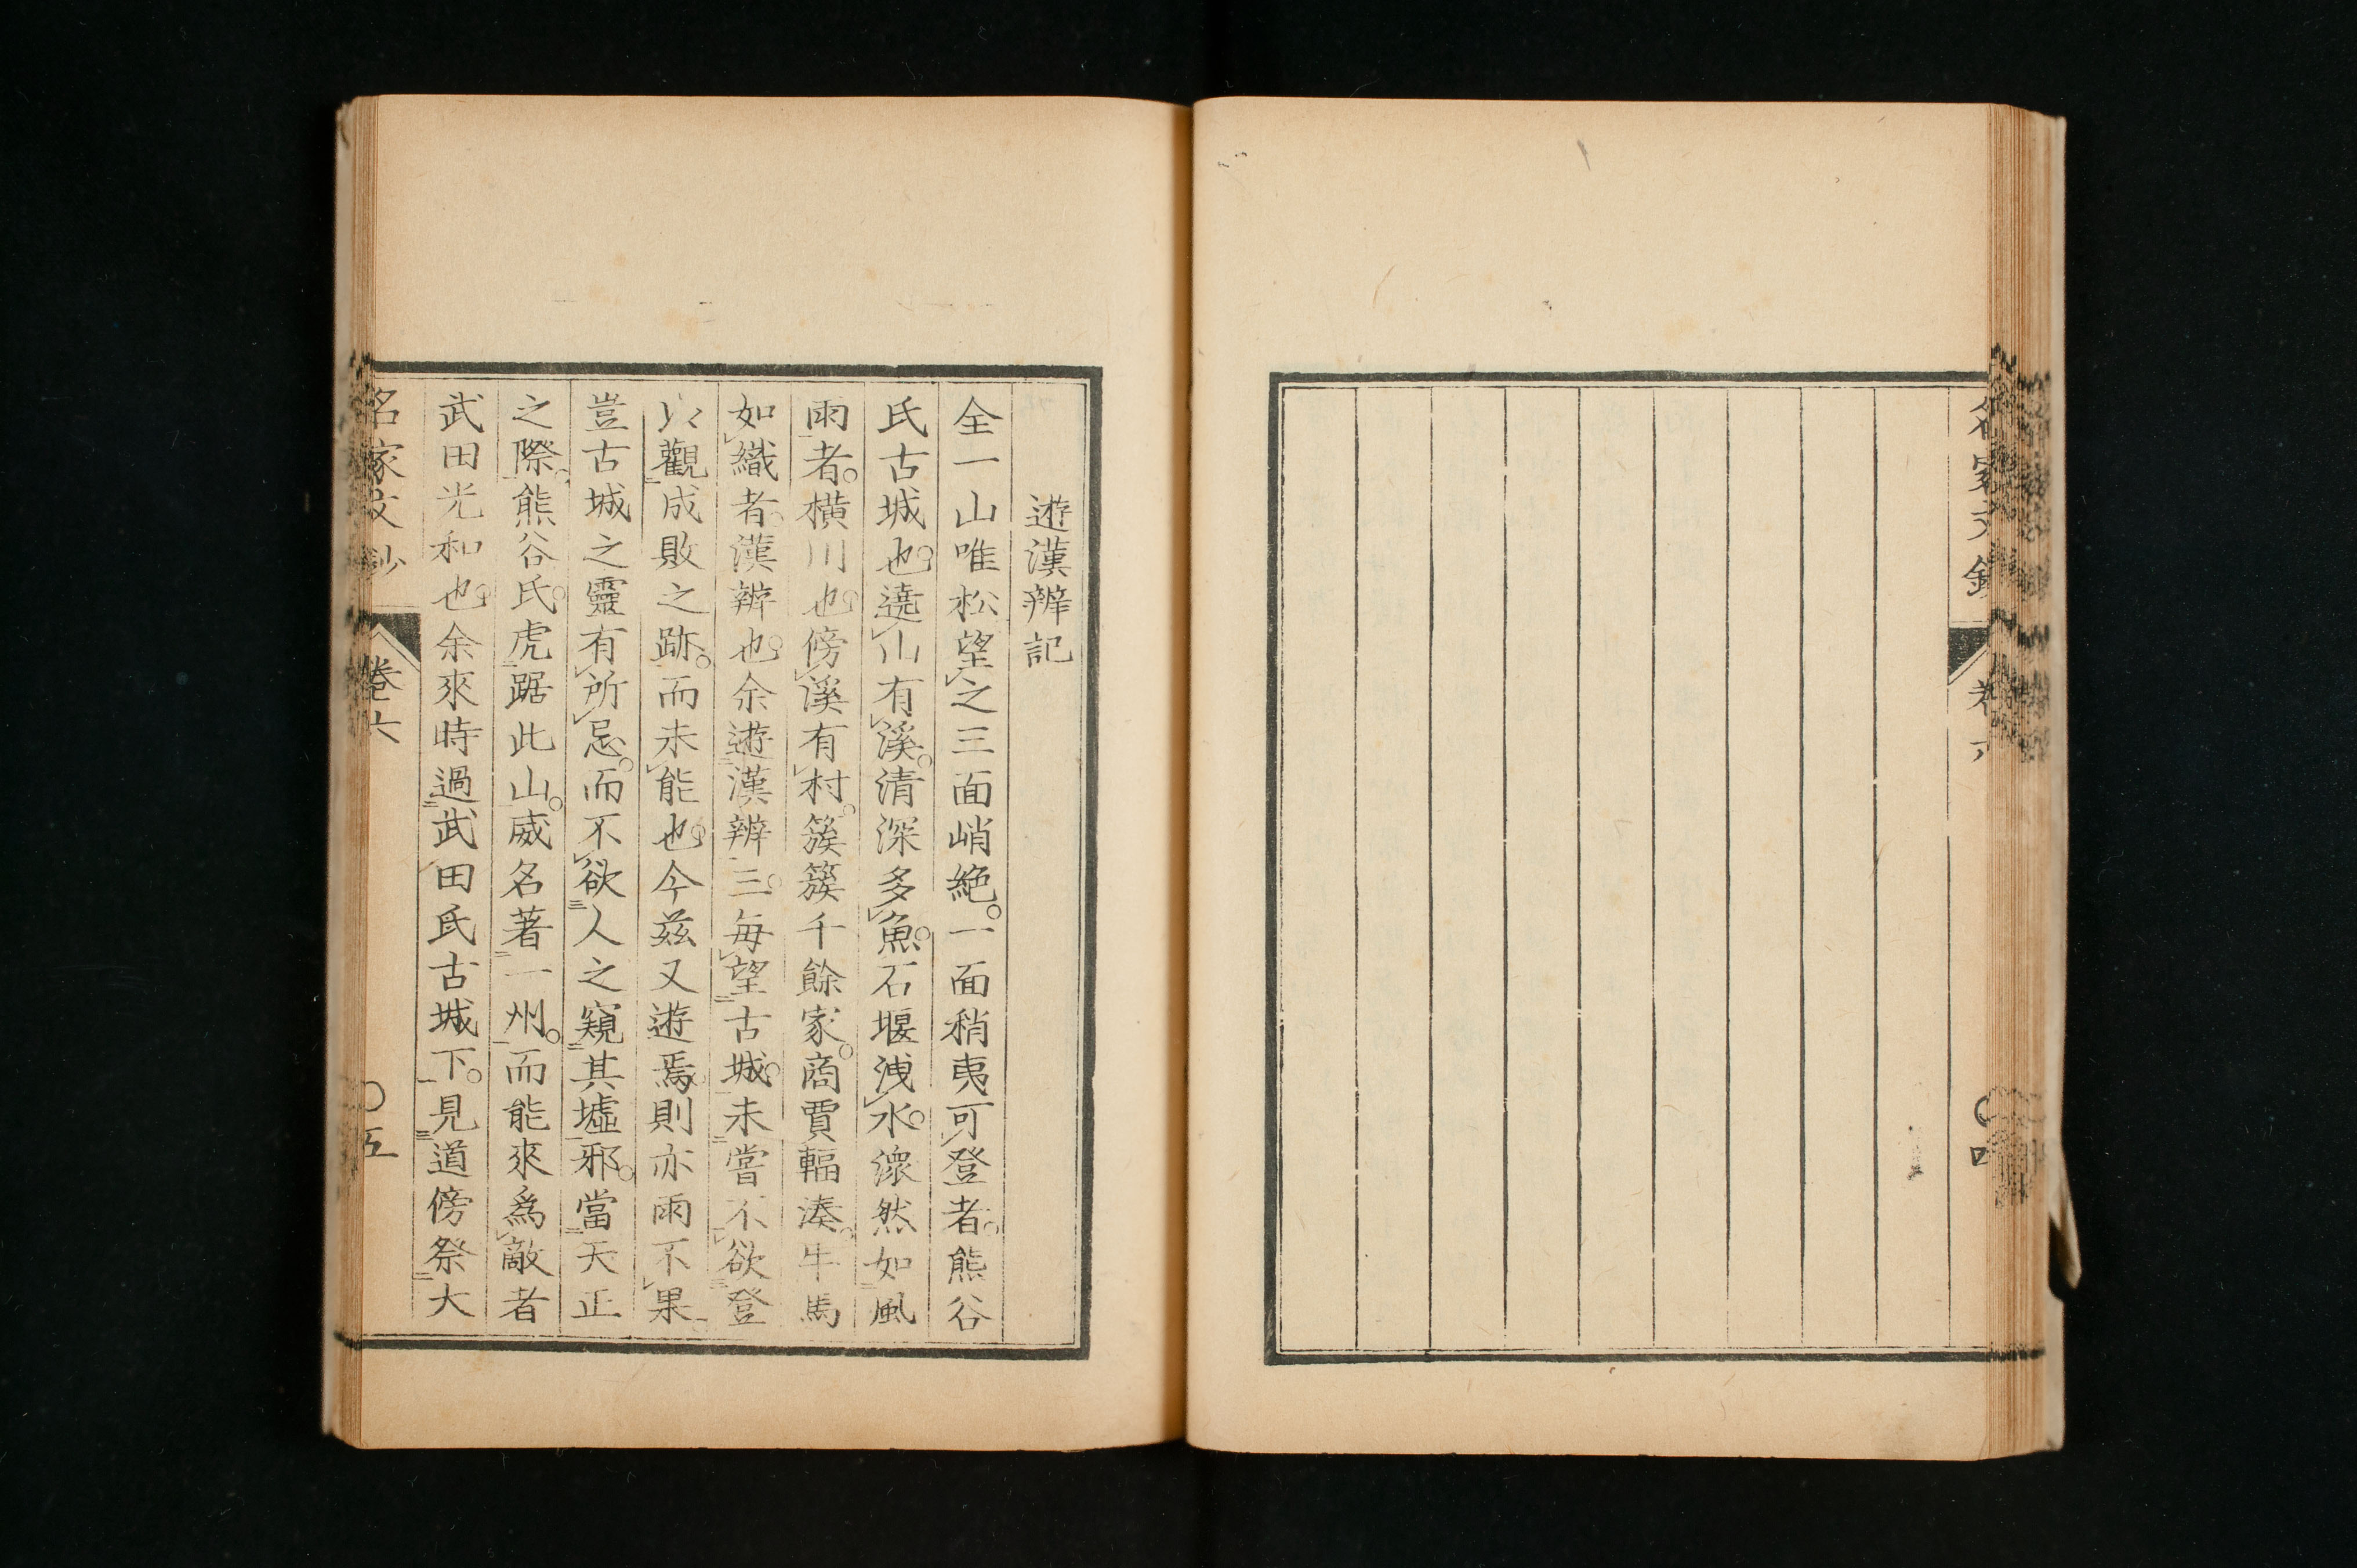 遊漢辨記
全一山唯松望之三面峭絶。一面稍夷可登者。熊谷
氏古城也。遶山有溪。清深多魚。石堰洩水。濃然如風
雨者。橫川也。傍溪有村。簇簇千餘家。商賈輻湊。牛馬
如織者。漢辨也。余遊漢辨三。每望古城。未嘗不欲登
以觀成敗之跡。而未能也。今茲又遊焉。則亦雨不果
豈古城之靈有所忌。而不欲人之窺其墟邪。當天正
之際。熊谷氏。虎踞此山。威名著一州。而能來爲敵者
武田光和也。余來時過武田氏古城下。見道傍祭大
名家文鈔
卷六
〇五